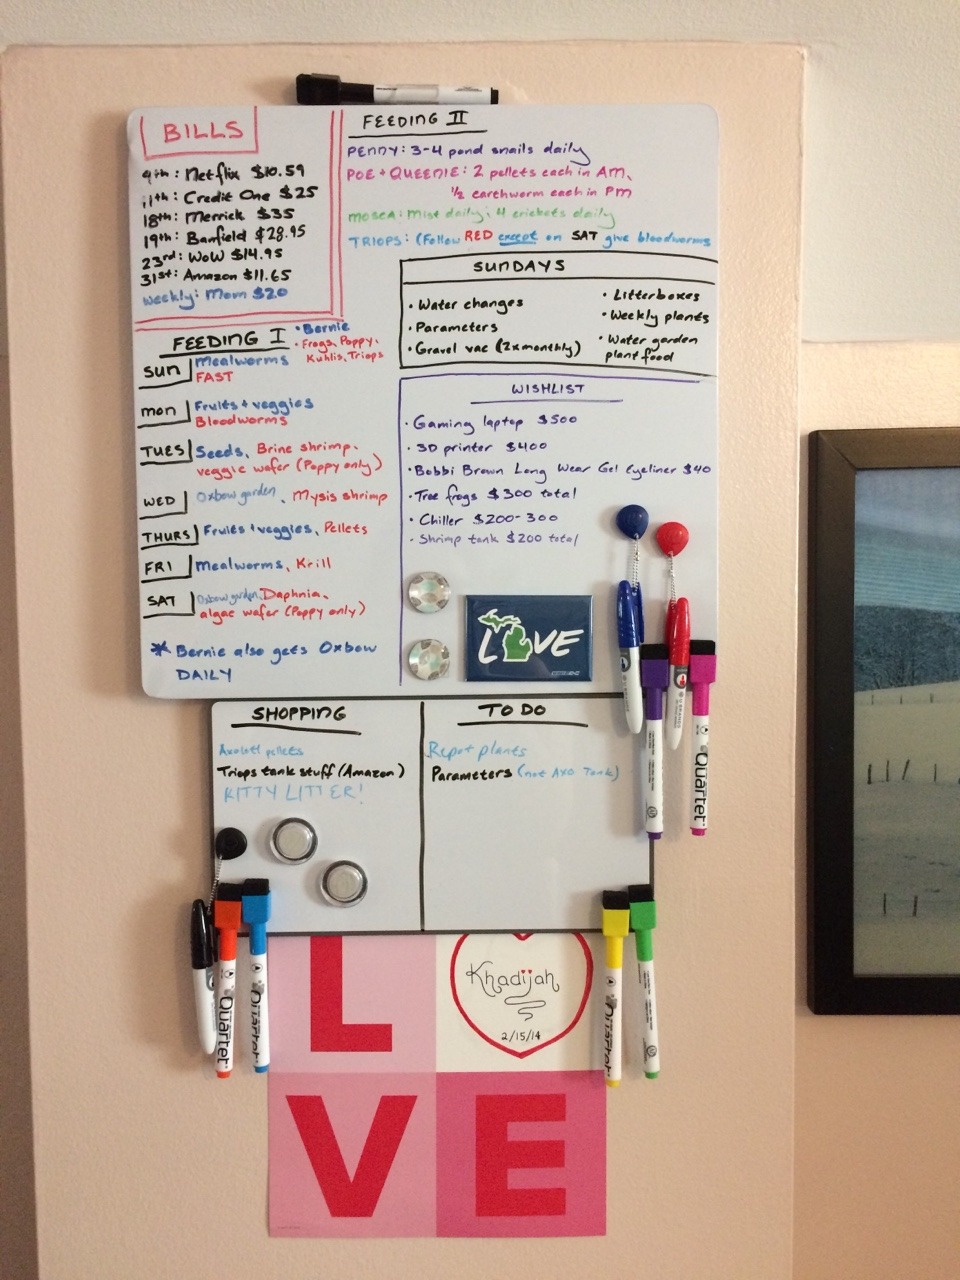 BILLS
9th: Netflix $10.59
11th: Credit One $25
18th: Merrick $35
19th: Banfield $28.95
23rd: WoW $14.95
31st: Amazon $11.65
Weekly: Mom $20
FEEDING II
PENNY: 3-4 pond snails daily
POE + QUEENIE: 2 pellets each in AM,
1/2 earthworm each in PM
MOSCA: Mist daily; 4 crickets daily
TRIOPS: (Follow RED except on SAT give bloodworms
SUNDAYS
• Water changes
• Parameters
• Gravel vac (2x monthly)
• Litterboxes
• Weekly plants
• Water garden
plant food
FEEDING I
• Bernie
• Frogs, Poppy,
Kuhlis, Triops
SUN Mealworms
FAST
MON Fruits + veggies
Bloodworms
TUES Seeds, Brine shrimp,
veggie wafer (Poppy only)
WED Oxbow garden, Mysis shrimp
THURS Fruits + veggies, Pellets
FRI Mealworms, Krill
SAT Oxbow garden, Daphnia,
algae wafer (Poppy only)
* Bernie also gets Oxbow
DAILY
WISHLIST
• Gaming laptop $500
• 3D printer $400
• Bobbi Brown Long Wear Gel Eyeliner $40
• Tree frogs $300 total
• Chiller $200-300
• Shrimp tank $200 total
LOVE
SHOPPING
Axolotl pellets
Triops tank stuff (Amazon)
KITTY LITTER!
TO DO
Repot plants
Parameters (not Axo Tank)
Quartet
Quartet
Quartet
Quartet
L
Khadijah
2/15/14
VE